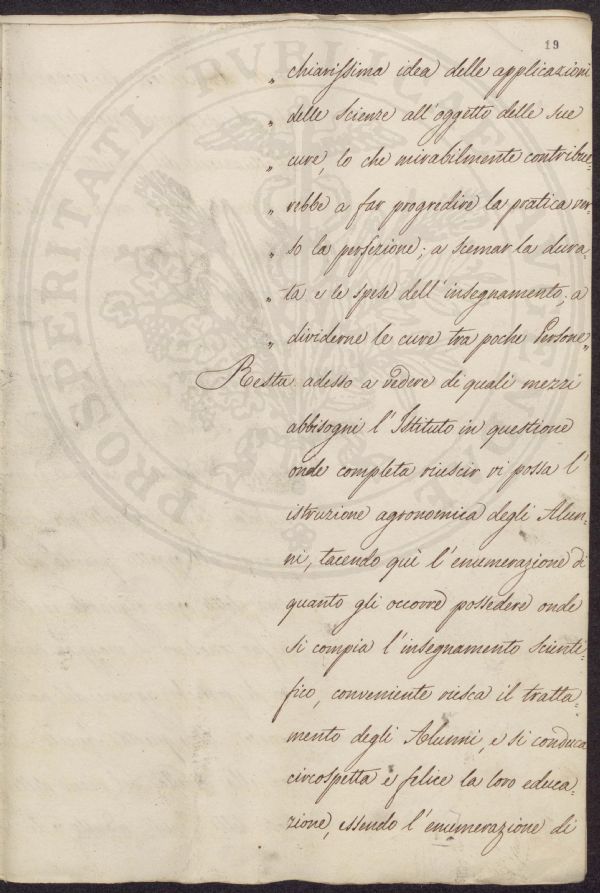 19
„ chiarissima idea delle applicazioni
„ delle scienze all'oggetto delle sue
„ cure, lo che mirabilmente contribue-
„ rebbe a far progredire la pratica ver-
„ so la perfezione; a scemar la dura-
„ ta e le spese dell'insegnamento; a
„ dividerne le cure tra poche Persone „
Resta adesso a vedere di quali mezzi
abbisogni l'Istituto in questione
onde completa riuscir vi possa l'
istruzione agronomica degli Alun-
ni, tacendo quì l'enumerazione di
quanto gli occorre possedere onde
si compia l'insegnamento scienti-
fico, conveniente riesca il tratta-
mento degli Alunni, e si conduca
circospetta e felice la loro educa-
zione, essendo l'enumerazione di
PROSPERITATI PVBLICAE